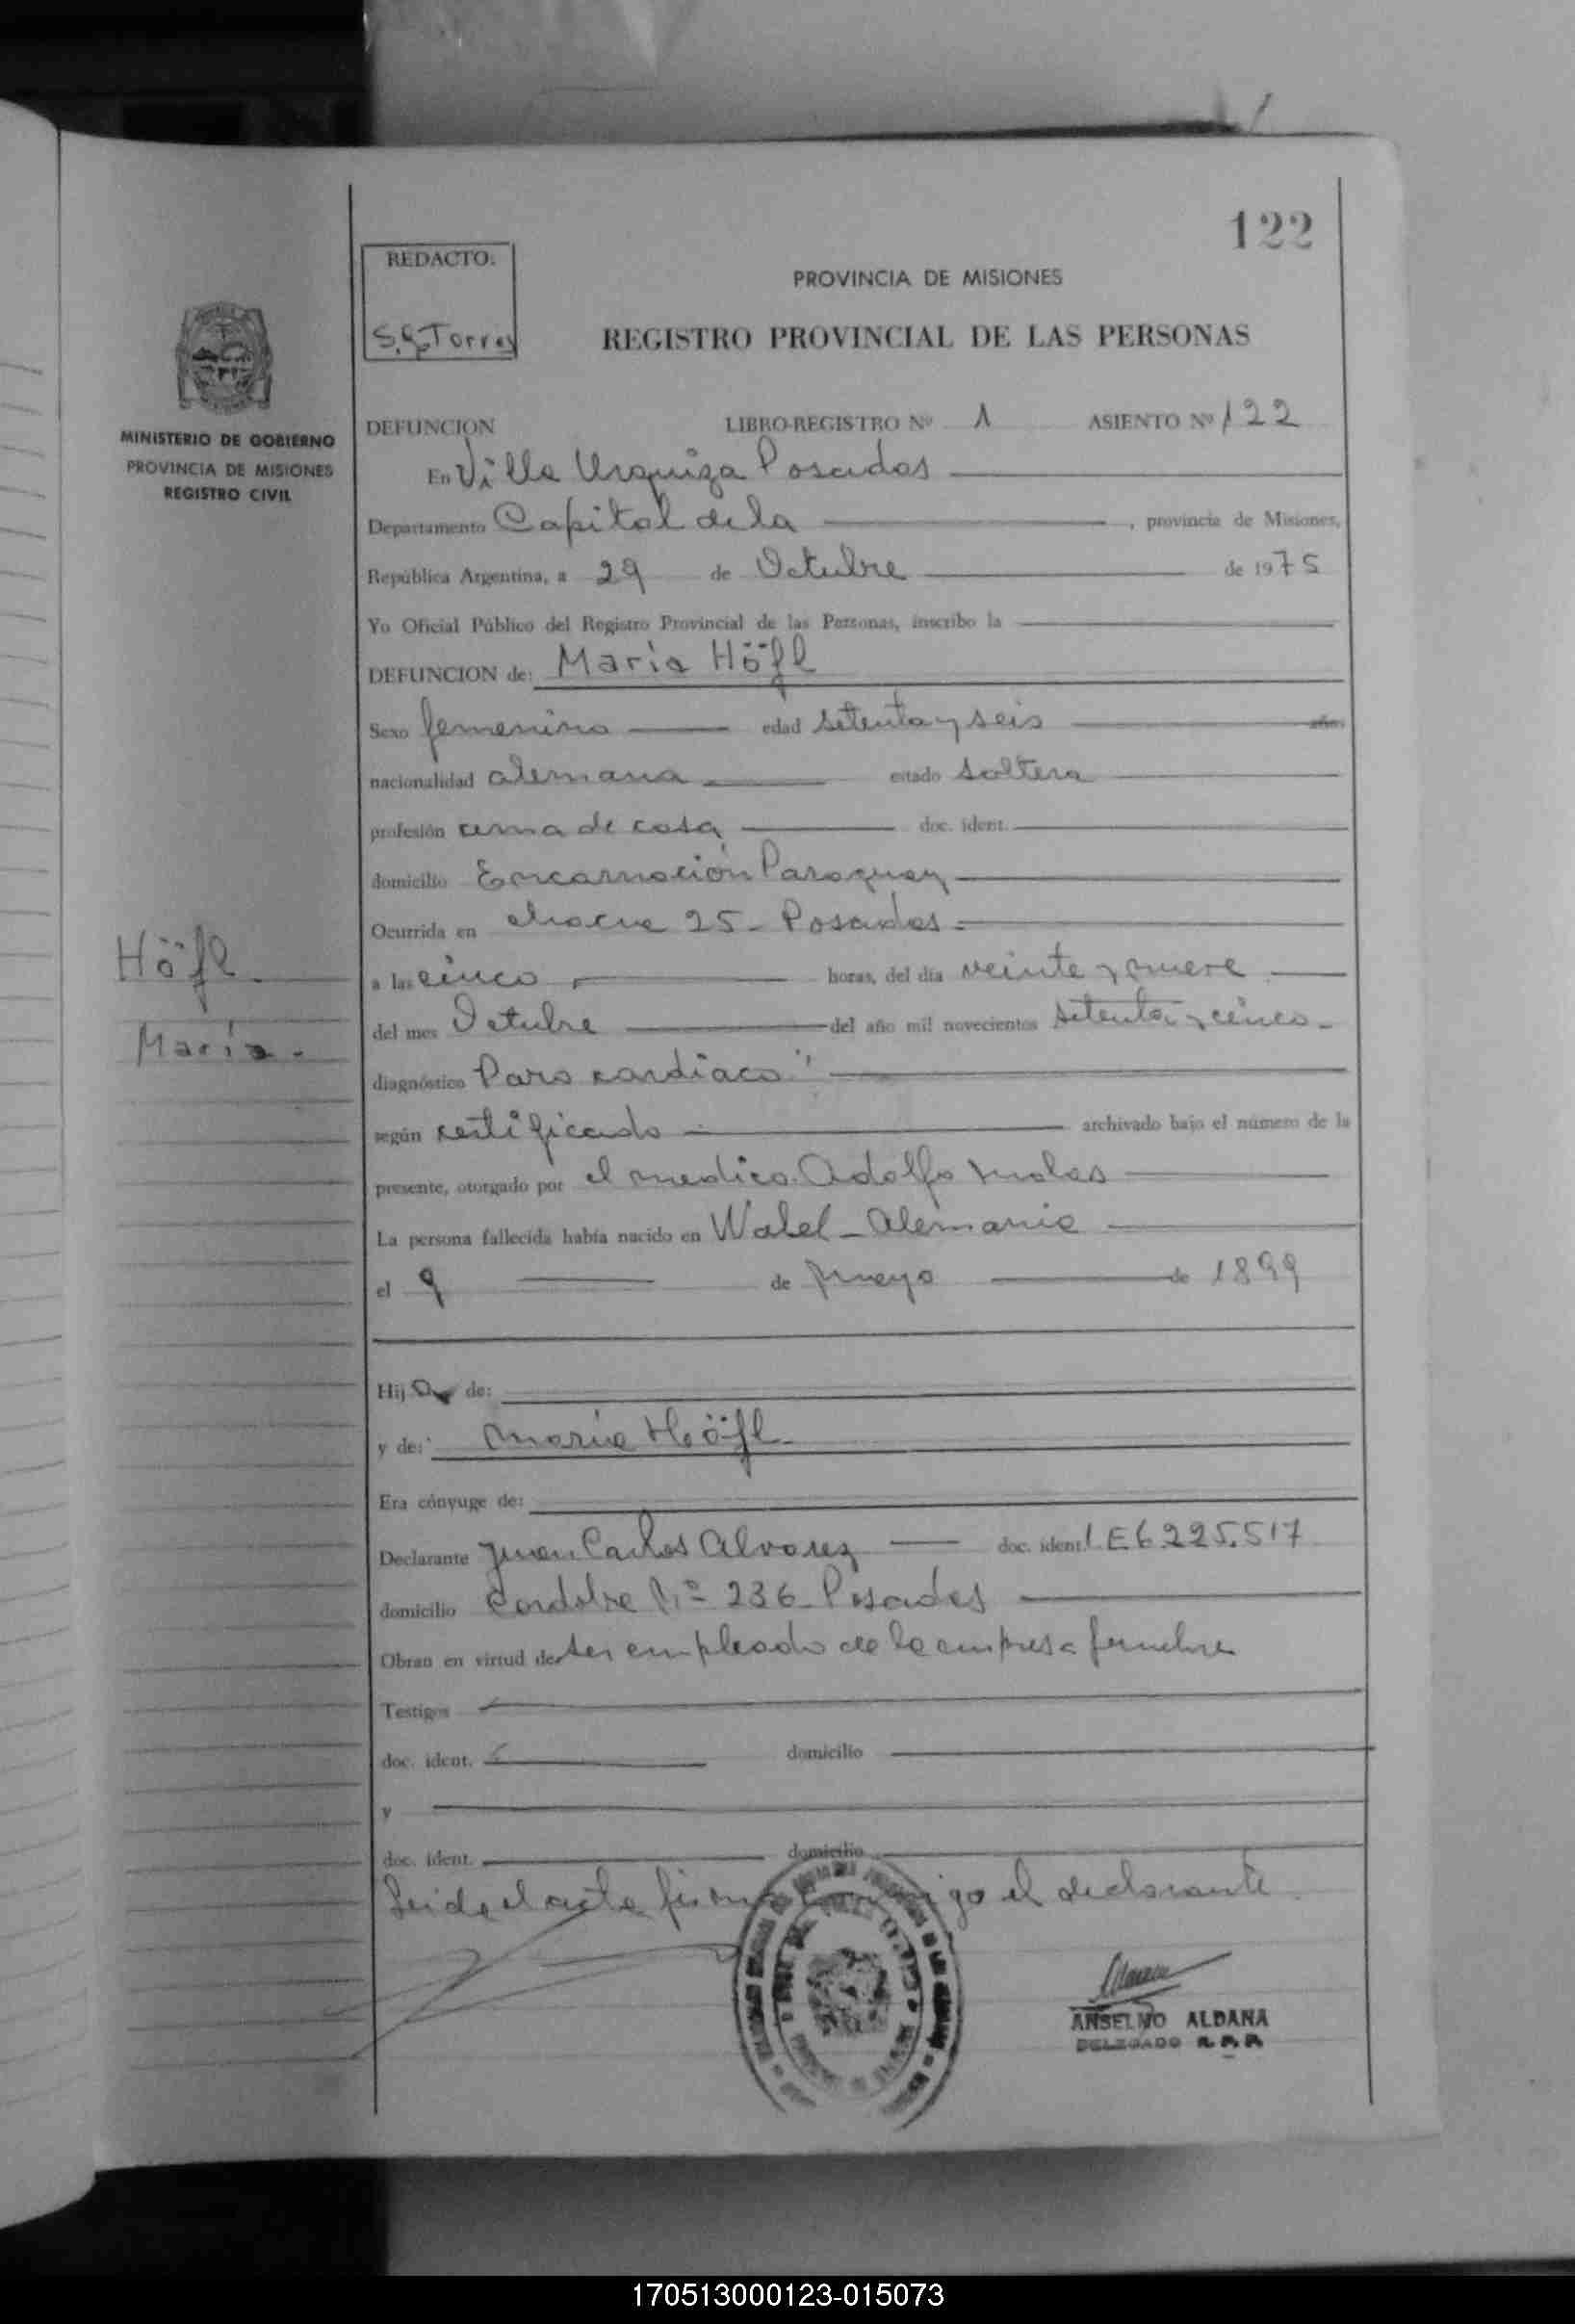 122
REDACTO:
S. G. Torres
PROVINCIA DE MISIONES
REGISTRO PROVINCIAL DE LAS PERSONAS
MINISTERIO DE GOBIERNO
PROVINCIA DE MISIONES
REGISTRO CIVIL
DEFUNCION LIBRO-REGISTRO Nº 1 ASIENTO Nº 122
En Villa Urquiza Posadas
Departamento Capital de la , provincia de Misiones,
República Argentina, a 29 de Octubre de 1975
Yo Oficial Público del Registro Provincial de las Personas, inscribo la
DEFUNCION de: María Höfl
Sexo femenino edad setenta y seis años
nacionalidad alemana estado soltera
profesión ama de casa doc. ident.
domicilio Encarnación Paraguay
Ocurrida en chacra 25 - Posadas
a las cinco horas, del día veinte y nueve
del mes Octubre del año mil novecientos setenta y cinco -
diagnóstico Paro cardíaco"
según certificado archivado bajo el número de la
presente, otorgado por el medico Adolfo
La persona fallecida había nacido en Walel - Alemania
el 9 de Mayo de 1899
Höfl
María.
Hija de:
y de: María Höfl
Era cónyuge de:
Declarante Juan Carlos Alvarez doc. ident. L E 6.225.517
domicilio Cordoba Nº 236 Posadas
Obran en virtud de ser empleado de la empresa funebre
Testigos
doc. ident. domicilio
y
doc. ident. domicilio
Leida el acta firma conmigo el declarante
ANSELMO ALDANA
DELEGADO R. P. P.
170513000123-015073